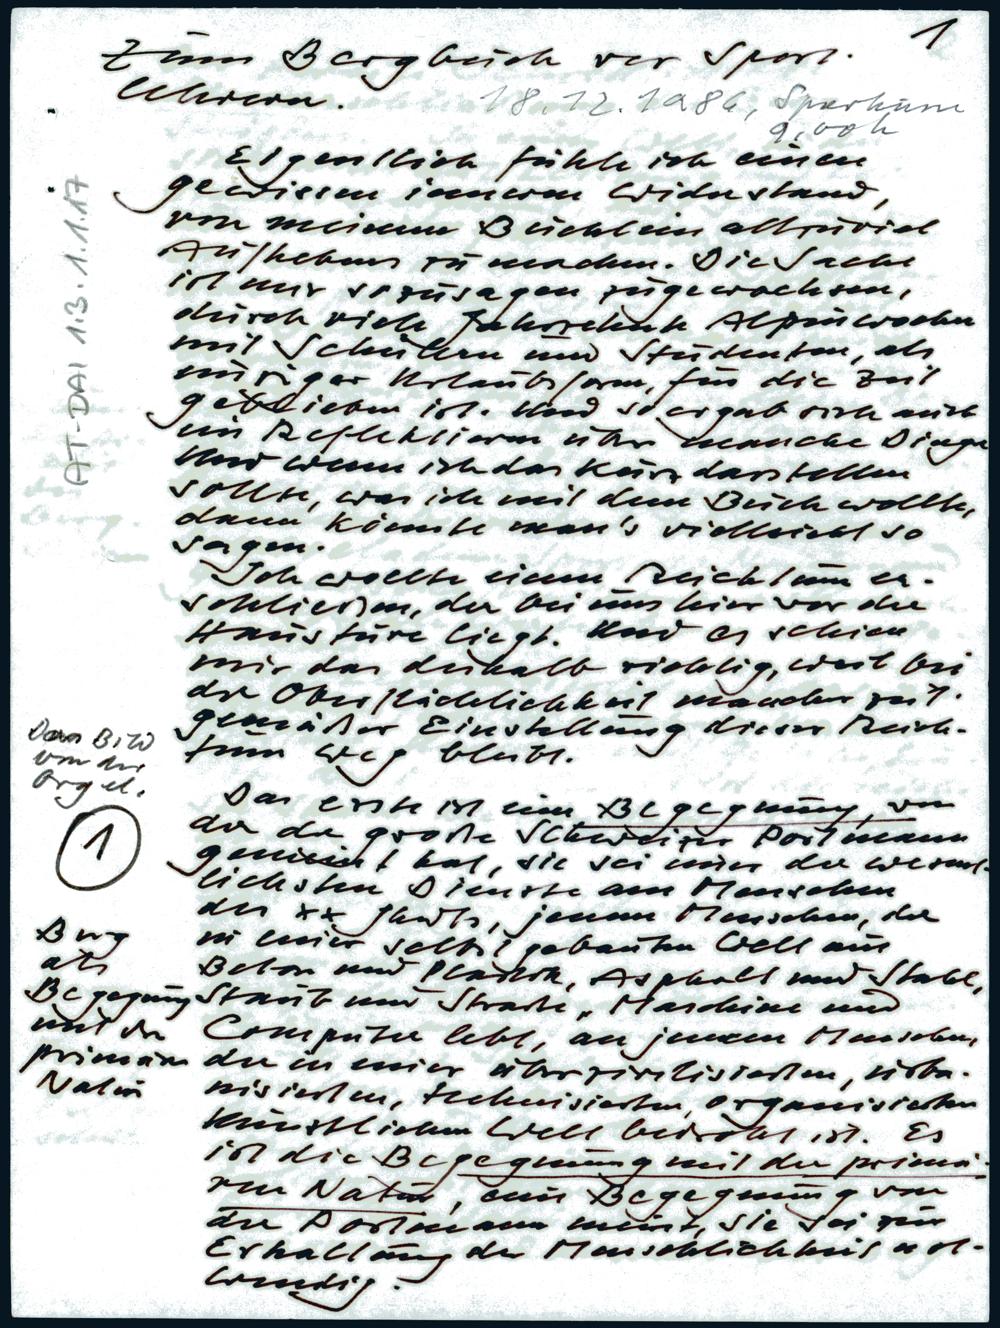 1
Zum Bergbuch vor Sport-
lehrern.
18.12.1986,
9,00h
AT-DAI 1.3.1.1.17
Eigentlich fühle ich einen
gewissen inneren Widerstand,
von meinem Büchlein allzuviel
Aufhebens zu machen. Die Sache
ist mir sozusagen zugewachsen,
durch viele Jahrzehnte Alpinwochen
mit Schülern und Studenten, als
einziger Urlaubsform, für die Zeil
geblieben ist. Und so ergab sich auch
ein Reflektieren über manche Dinge
Und wenn ich das kurz darstellen
sollte, was ich mit dem Buch wollte,
dann könnte man's vielleicht so
sagen.
Ich wollte einen Reichtum er-
schließen, der bei uns hier vor der
Haustüre liegt. Und es schien
mir das deshalb richtig, weil bei
der Oberflächlichkeit mancher zeit-
gemäßer Einstellung dieser Reich-
tum weg bleibt.
Das Bild
von der
Orgel.
1
Das erste ist eine Begegnung, von
der der große Schweizer Portmann
gemeint hat, sie sei einer der wesent-
lichsten Dienste am Menschen
des XX Jhdts, jenem Menschen, der
in einer selbstgebauten Welt aus
Beton und Plastik, Asphalt und Stahl,
Staub und Straße, Maschine und
Computer lebt, an jenem Menschen,
der in einer überzivilisierten, urba-
nisierten, technisierten, organisierten
künstlichen Welt bedroht ist. Es
ist die Begegnung mit der primä-
ren Natur, eine Begegnung von
der Portmann meint, sie sei zur
Erhaltung der Menschlichkeit not-
wendig.
Berg
als
Begegnung
mit der
primären
Natur